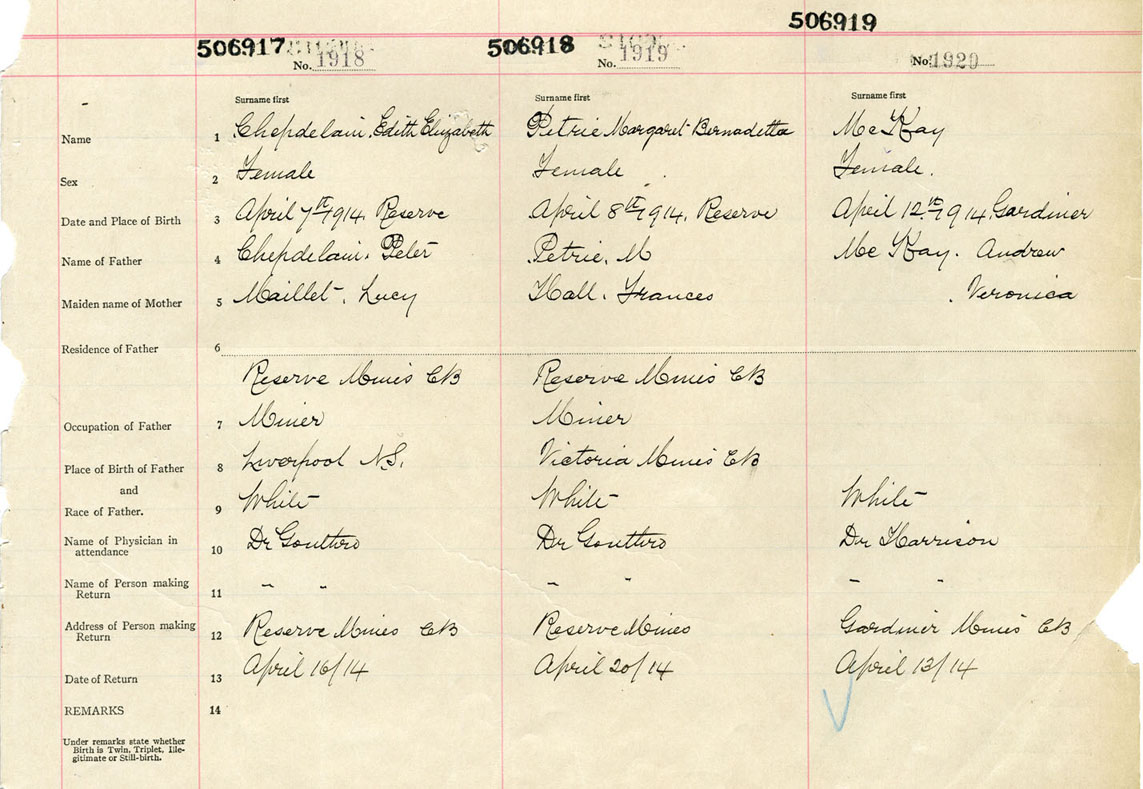 506917 506918 506919
No. 1918 No. 1919 No. 1920
Surname first Surname first Surname first
Name 1 Chepdelain, Edith Elizabeth Petrie Margaret Bernadetta McKay
Sex 2 Female Female Female.
Date and Place of Birth 3 April 7th 1914, Reserve April 8th 1914, Reserve April 12th 1914, Gardiner
Name of Father 4 Chepdelain, Peter Petrie, M McKay. Andrew
Maiden name of Mother 5 Maillet, Lucy Hall, Frances Veronica
Residence of Father 6
Reserve Mines CB Reserve Mines CB
Occupation of Father 7 Miner Miner
Place of Birth of Father 8 Liverpool N.S. Victoria Mines CB
and
Race of Father. 9 White White White
Name of Physician in attendance 10 Dr Gouthro Dr Gouthro Dr Harrison
Name of Person making Return 11 - - - " - -
Address of Person making Return 12 Reserve Mines CB Reserve Mines Gardiner Mines CB
Date of Return 13 April 16/14 April 20/14 April 13/14
REMARKS 14
Under remarks state whether
Birth is Twin, Triplet, Ille-
gitimate or Still-birth.